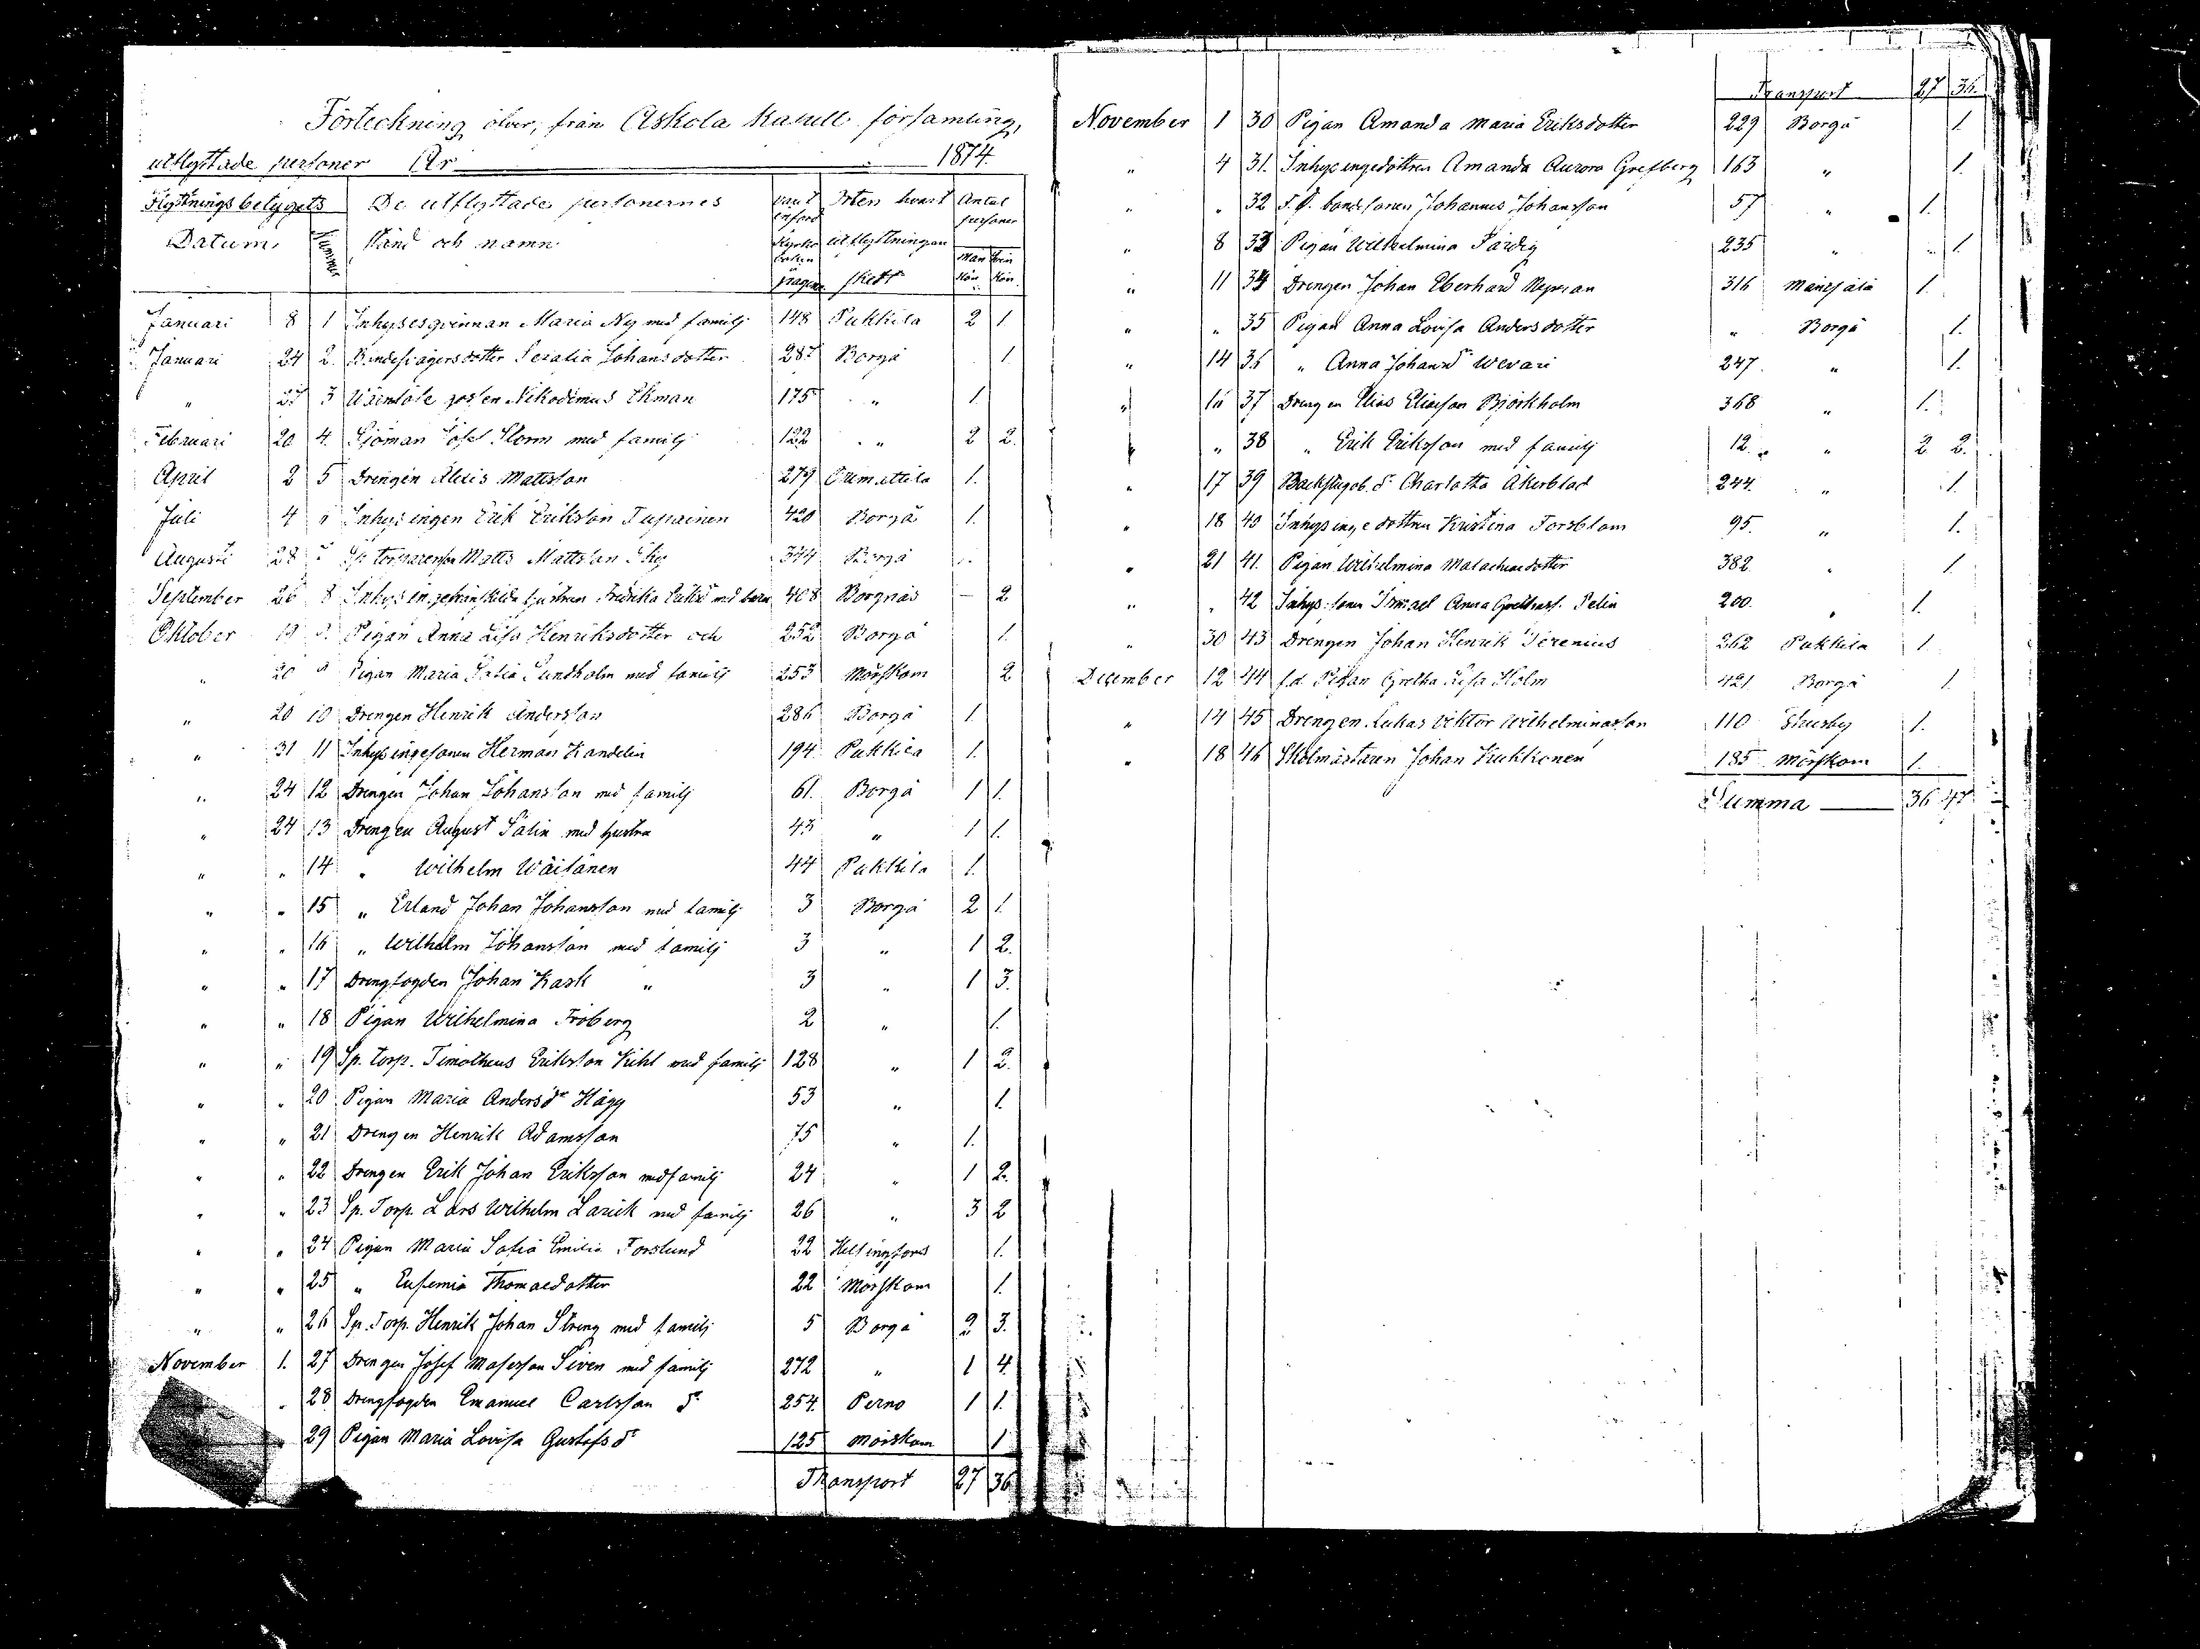 Förteckning öfver, från Askola Kapell församling,
utflyttade personer År 1874.
Flyttningsbetygets De utflyttade personernes Orten hvart Antal personer
Datum. Nummer Stånd och namn Kyrkoboken pagina utflyttningen skett Mankön Qvinkön
Januari 8 1 Inhysesqvinnan Maria Ny med familj 148 Pukkila 2 1.
Januari 24 2. Serafia Johansdotter 287 Borgå 1.
" 27 3 Nikodemus Ekman 175 " 1.
Februari 20 4. Sjöman Josef Storm med familj 122 " 2 2.
April 2 5 Drengen Alexis Mattsson 279 Orimattila 1.
Juli 4 6 Inhysingen Erik Eriksson Tupainen 420 Borgå 1.
Augusti 28 7 Matts Mattsson 344 Borgå 1.
September 26 8 hustrun Fredrika med barn 408 Borgnäs — 2
Oktober 19 Pigan Anna Lisa Henriksdotter och 252 Borgå 1.
" 20 9 Pigan Maria Sofia Sundholm med familj 253 Mörskom 2
" 20 10 Drengen Henrik Andersson 286 Borgå 1.
" 31 11 Inhysingesonen Herman Kandelin 194 Pukkila 1.
" 24 12 Drengen Johan Johansson med familj 61. Borgå 1 1.
" 24 13 Drengen August Salin med hustru 43 " 1 1.
" " 14 " Wilhelm Wäisänen 44 Pukkila 1.
" " 15 " Erland Johan Johansson med familj 3 Borgå 2 1.
" " 16 " Wilhelm Johansson med familj 3 " 1 2.
" " 17 Drengfogden Johan Kask " 3 " 1 3.
" " 18 Pigan Wilhelmina Froberg 2 " 1.
" " 19 Sp. torp. Timotheus Eriksson Kihl med familj 128 " 1 2.
" " 20 Pigan Maria Andersdr Hägg 53 " 1.
" " 21 Drengen Henrik Adamsson 75 " 1.
" " 22 Drengen Erik Johan Eriksson med familj 24 " 1 2.
" " 23 Sp. Torp. Lars Wilhelm Larick med familj 26 " 3 2
" " 24 Pigan Maria Sofia Emilia Forslund 22 Helsingfors 1.
" " 25 " Eufemia Thomasdotter 22 Mörskom 1.
" " 26 Sp. Torp. Henrik Johan Streng med familj 5 Borgå 2 3.
November 1. 27 Drengen Josef Mosesson Siven med familj 272 " 1 4.
" 28 Drengfogden Emanuel Carlsson do 254. Perno 1 1.
" 29 Pigan Maria Lovisa Gustafsdr 125 Mörskom 1
Transport 27 36
Transport 27 36.
November 1 30 Pigan Amanda Maria Eriksdotter 229 Borgå 1.
" 4 31. Inhysingedottren Amanda Aurora Grefberg 163 " 1.
" " 32 F.d. bondsonen Johannes Johansson 57 " 1.
" 8 33 Pigan Wilhelmina Färdig 235 " 1
" 11 34 Drengen Johan Eberhard 316 Mäntsälä 1.
" " 35 Pigan Anna Lovisa Andersdotter " Borgå 1.
" 14 36 " Anna Johansdr Wevari 247 " 1.
" 16 37 Drengen Elias Eliasson Björkholm 368 " 1.
" " 38 " Erik Eriksson med familj 12. " 2 2.
" 17 39 Backstugob. dr Charlotta Åkerblad 244. " 1.
" 18 40 Inhysingedottren Kristina Forsblom 95. " 1.
" 21 41. Pigan Wilhelmina Malachiasdotter 382 " 1.
" " 42 Inhys. sonen Ismael Anna Grethas. Pelin 200. " 1.
" 30 43 Drengen Johan Henrik Serenius 262 Pukkila 1
December 12 44 f.d. Pigan Gretha Lisa Holm 421 Borgå 1.
" 14 45 Drengen Lukas Viktor Wilhelminasson 110 Sibbo 1.
" 18 46 Skolmästaren Johan Kukkonen 185 Mörskom 1.
Summa 36 47